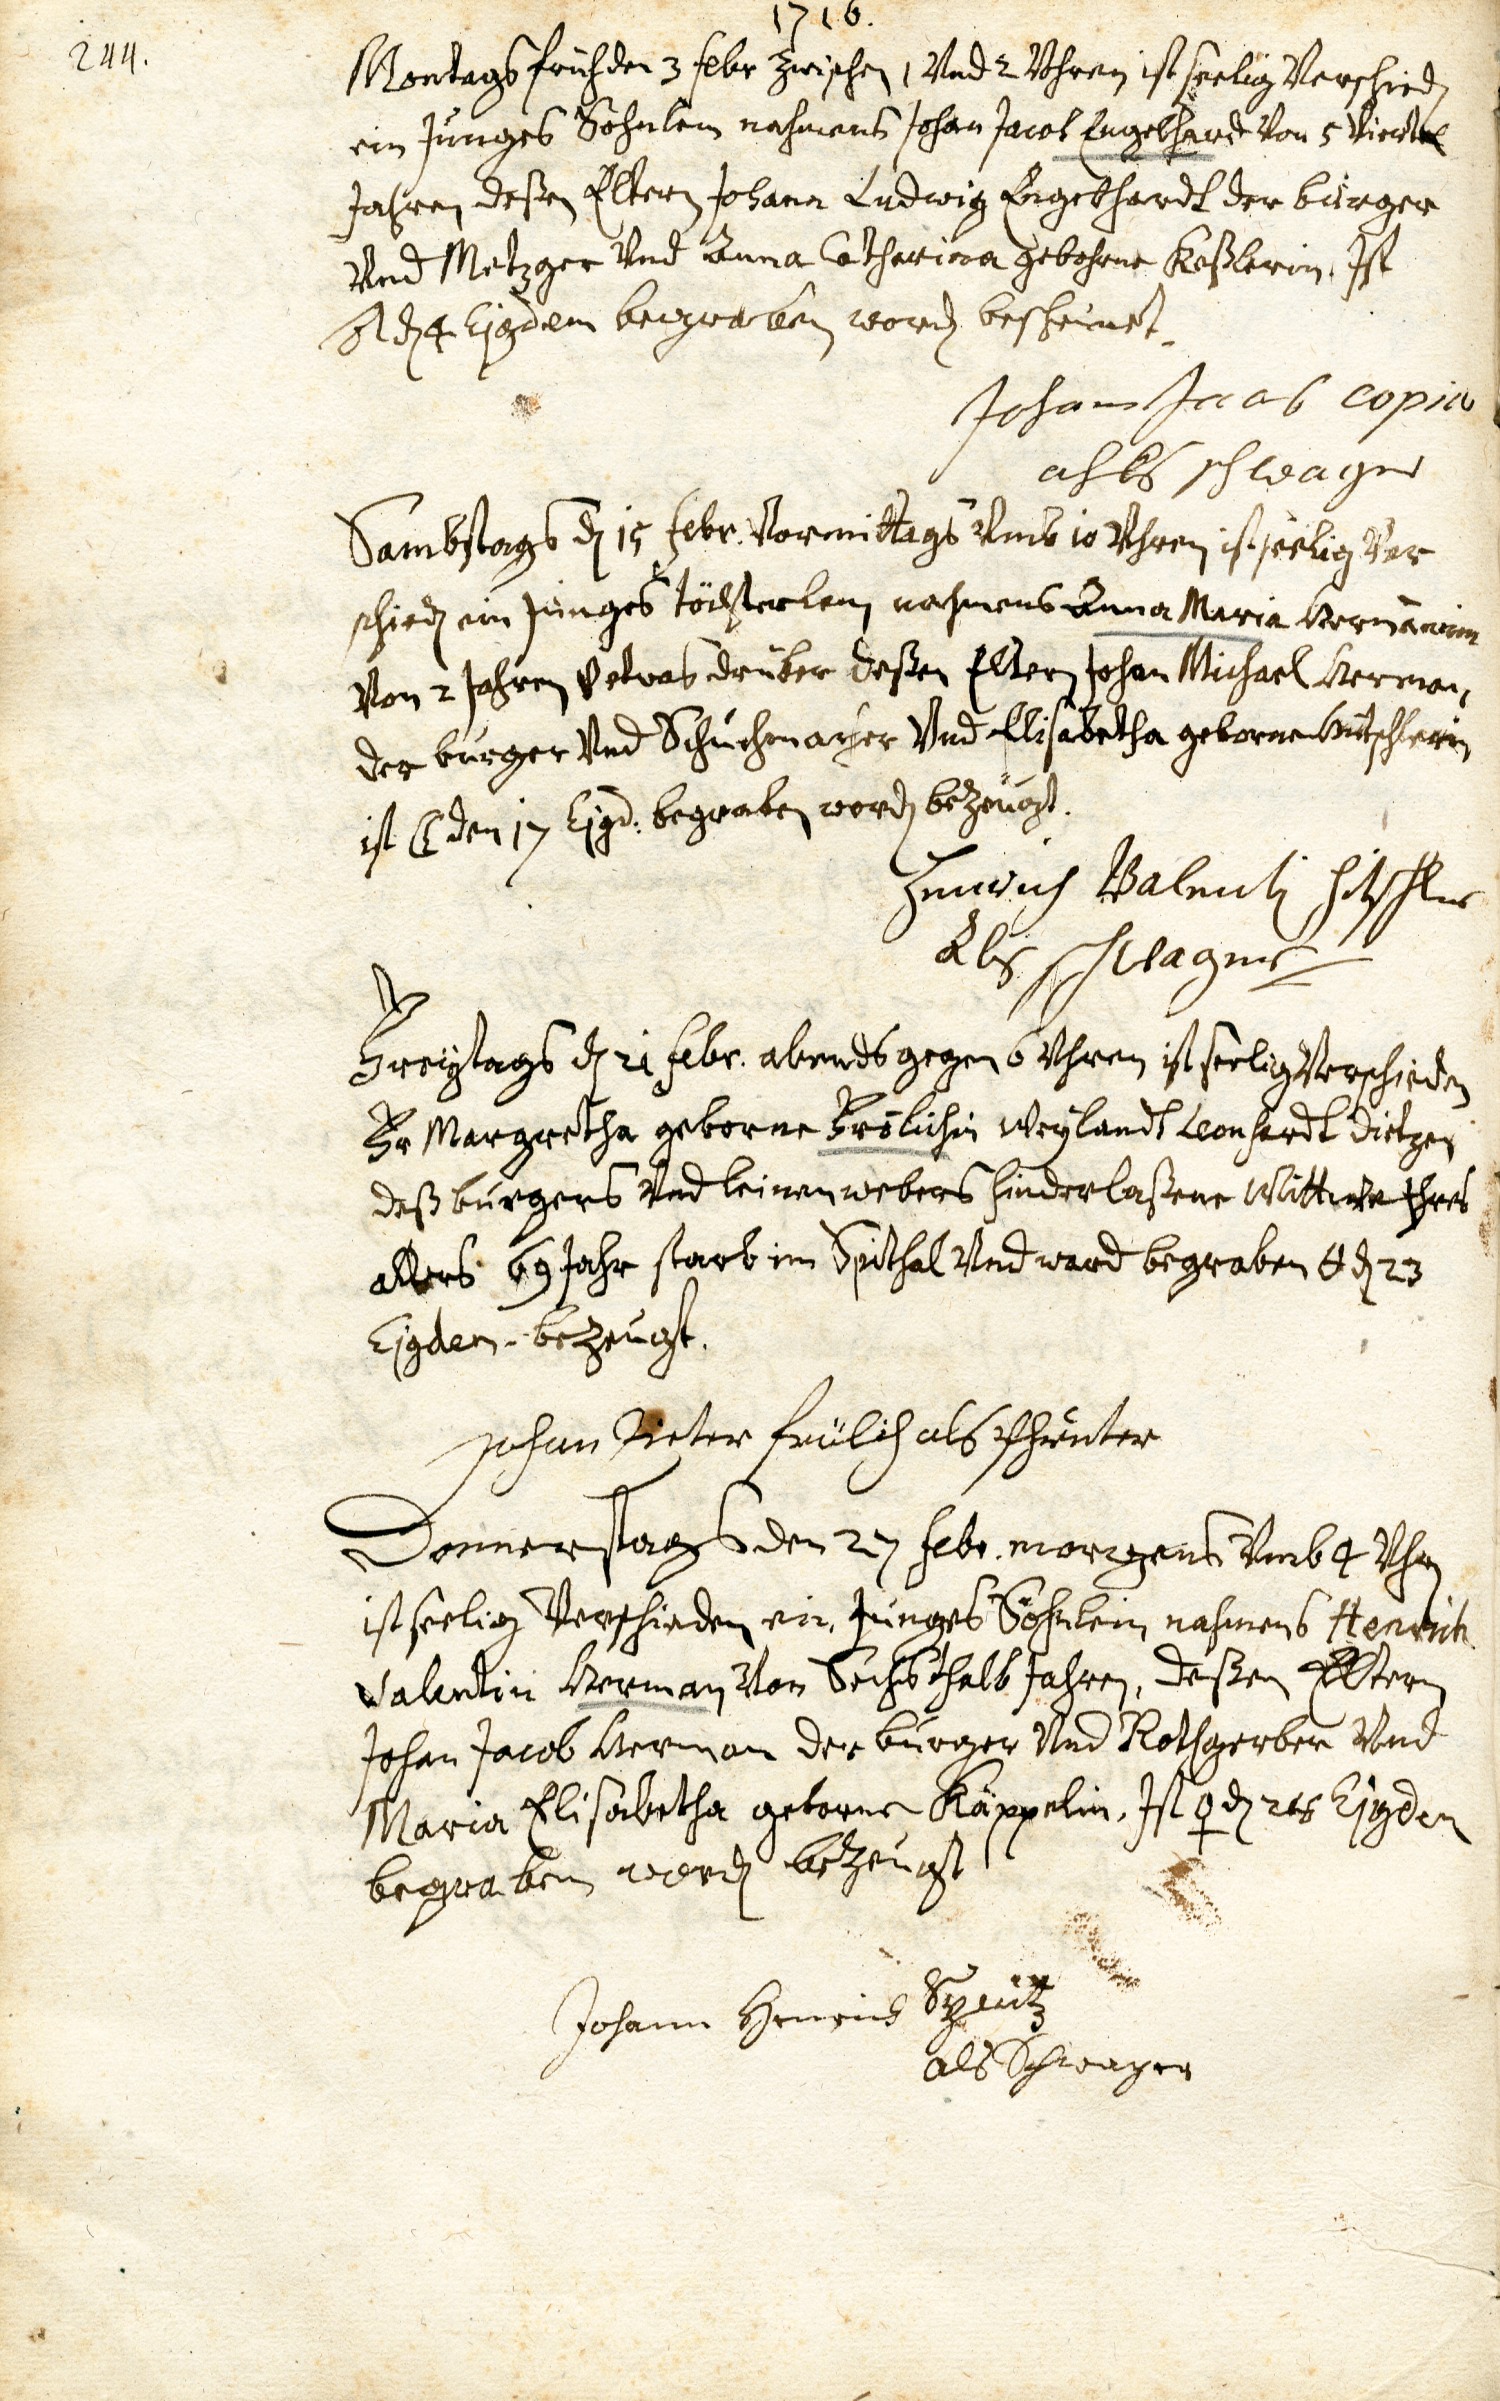 1716.
244.
Montags früh den 3 febr zwischen 1 Vnd 2 Vhren ist seelig Verschied
ein Junges Söhnlein nahmens Johan Jacob Engelhardt Von 5 Viertel
Jahren deßen Eltern Johann Ludwig Engelhardt der burger
Vnd Metzger Vnd Anna Catharina gebohrne Keßlerin. Ist
♂ d 4 Ejsdem begraben word bescheinet
Johan Jacob copia
alß schwager
Sambstags d 15 febr. Vormittags Vmb 10 Vhren ist seelig Ver
schied ein Junges töchterlein nahmens Anna Maria Hermännin
Von 2 Jahren V etwas drüber deßen Eltern Johan Michael Herman,
der burger Vnd Schuchmacher Vnd Elisabetha geborne Hitschlerin
ist ☾ den 17 Ejsd: begraben word bezeugt.
Henrich Valentin Hitschler
Als schwager
Freÿtags d 21 febr. abends gegen 6 Vhren ist seelig Verschieden
Fr Margretha geborne Frölichin Weylandt Leonhardt Dietzen
deß burgers Vnd leinenwebers hinderlaßene Wittwe Ihres
alters 69 Jahr starb im Spithal Vnd ward begraben d 23
Ejsdem bezeugt.
Johan Pieter Frülich als
Donnerstags den 27 febr. morgens Vmb 4 Vhr
ist seelig Verschieden ein Junges Söhnlein nahmens Henrich
Valentin Herman Von Sechsthalb Jahren, deßen Eltern
Johan Jacob Herman der burger Vnd Rothgerber Vnd
Maria Elisabetha geborne Käppelin. Ist ♀ d 28 Ejsdem
begraben word bezeugt
Johann Henrich
als Schwager